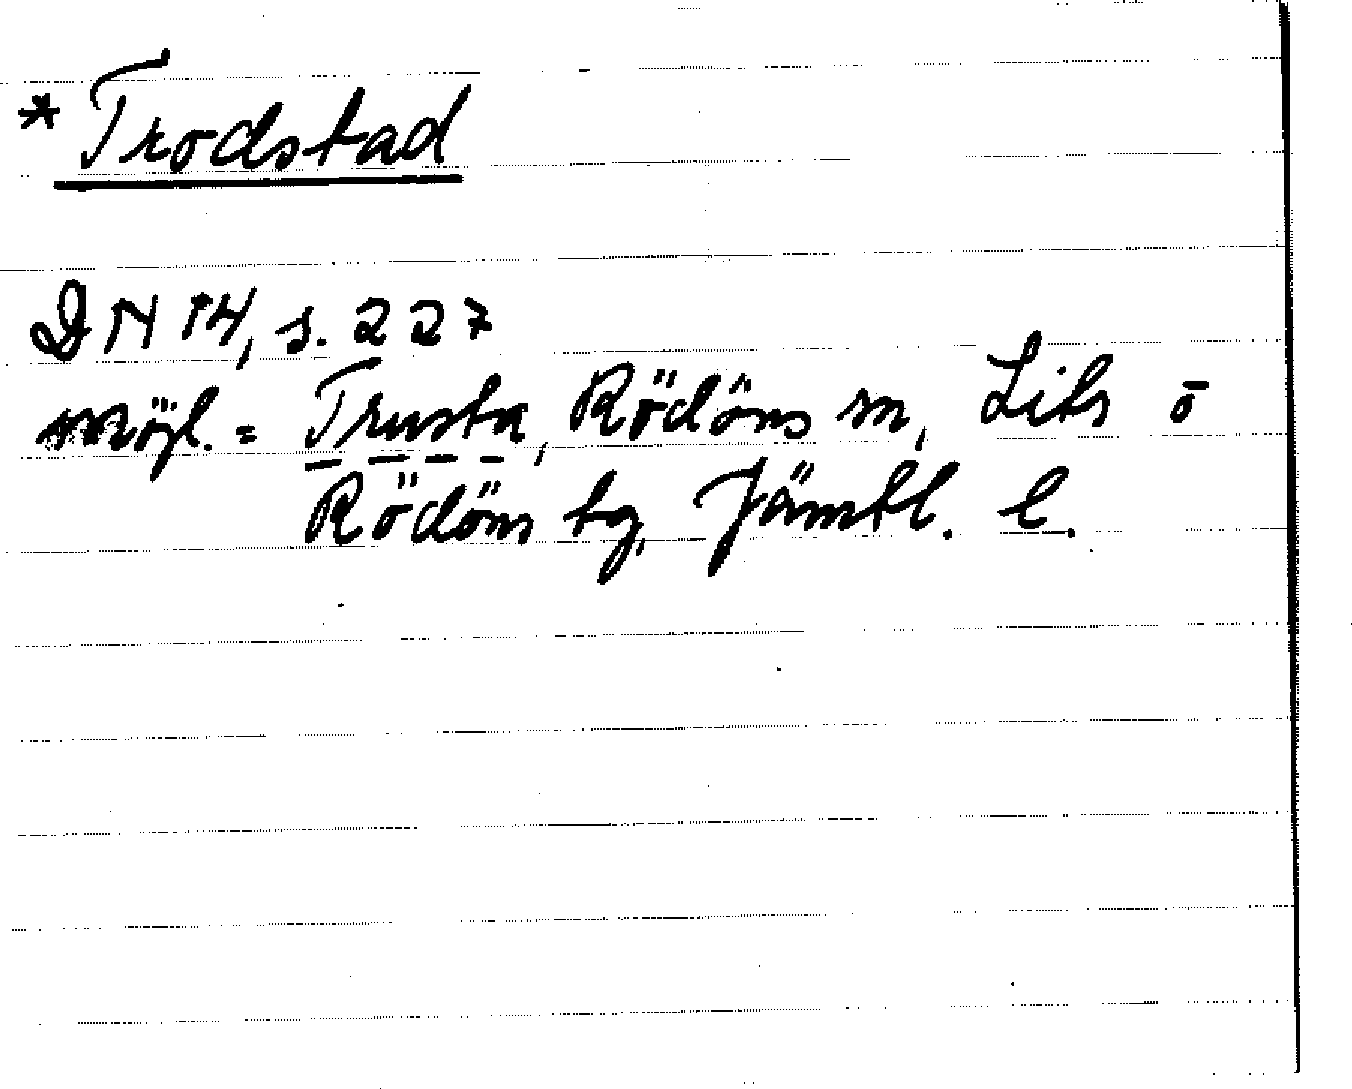 * Trodstad
DN 14, s. 227
Möjl. = Trusta, Rödöns sn, Lits o
Rödöns tg, Jämtl. l.